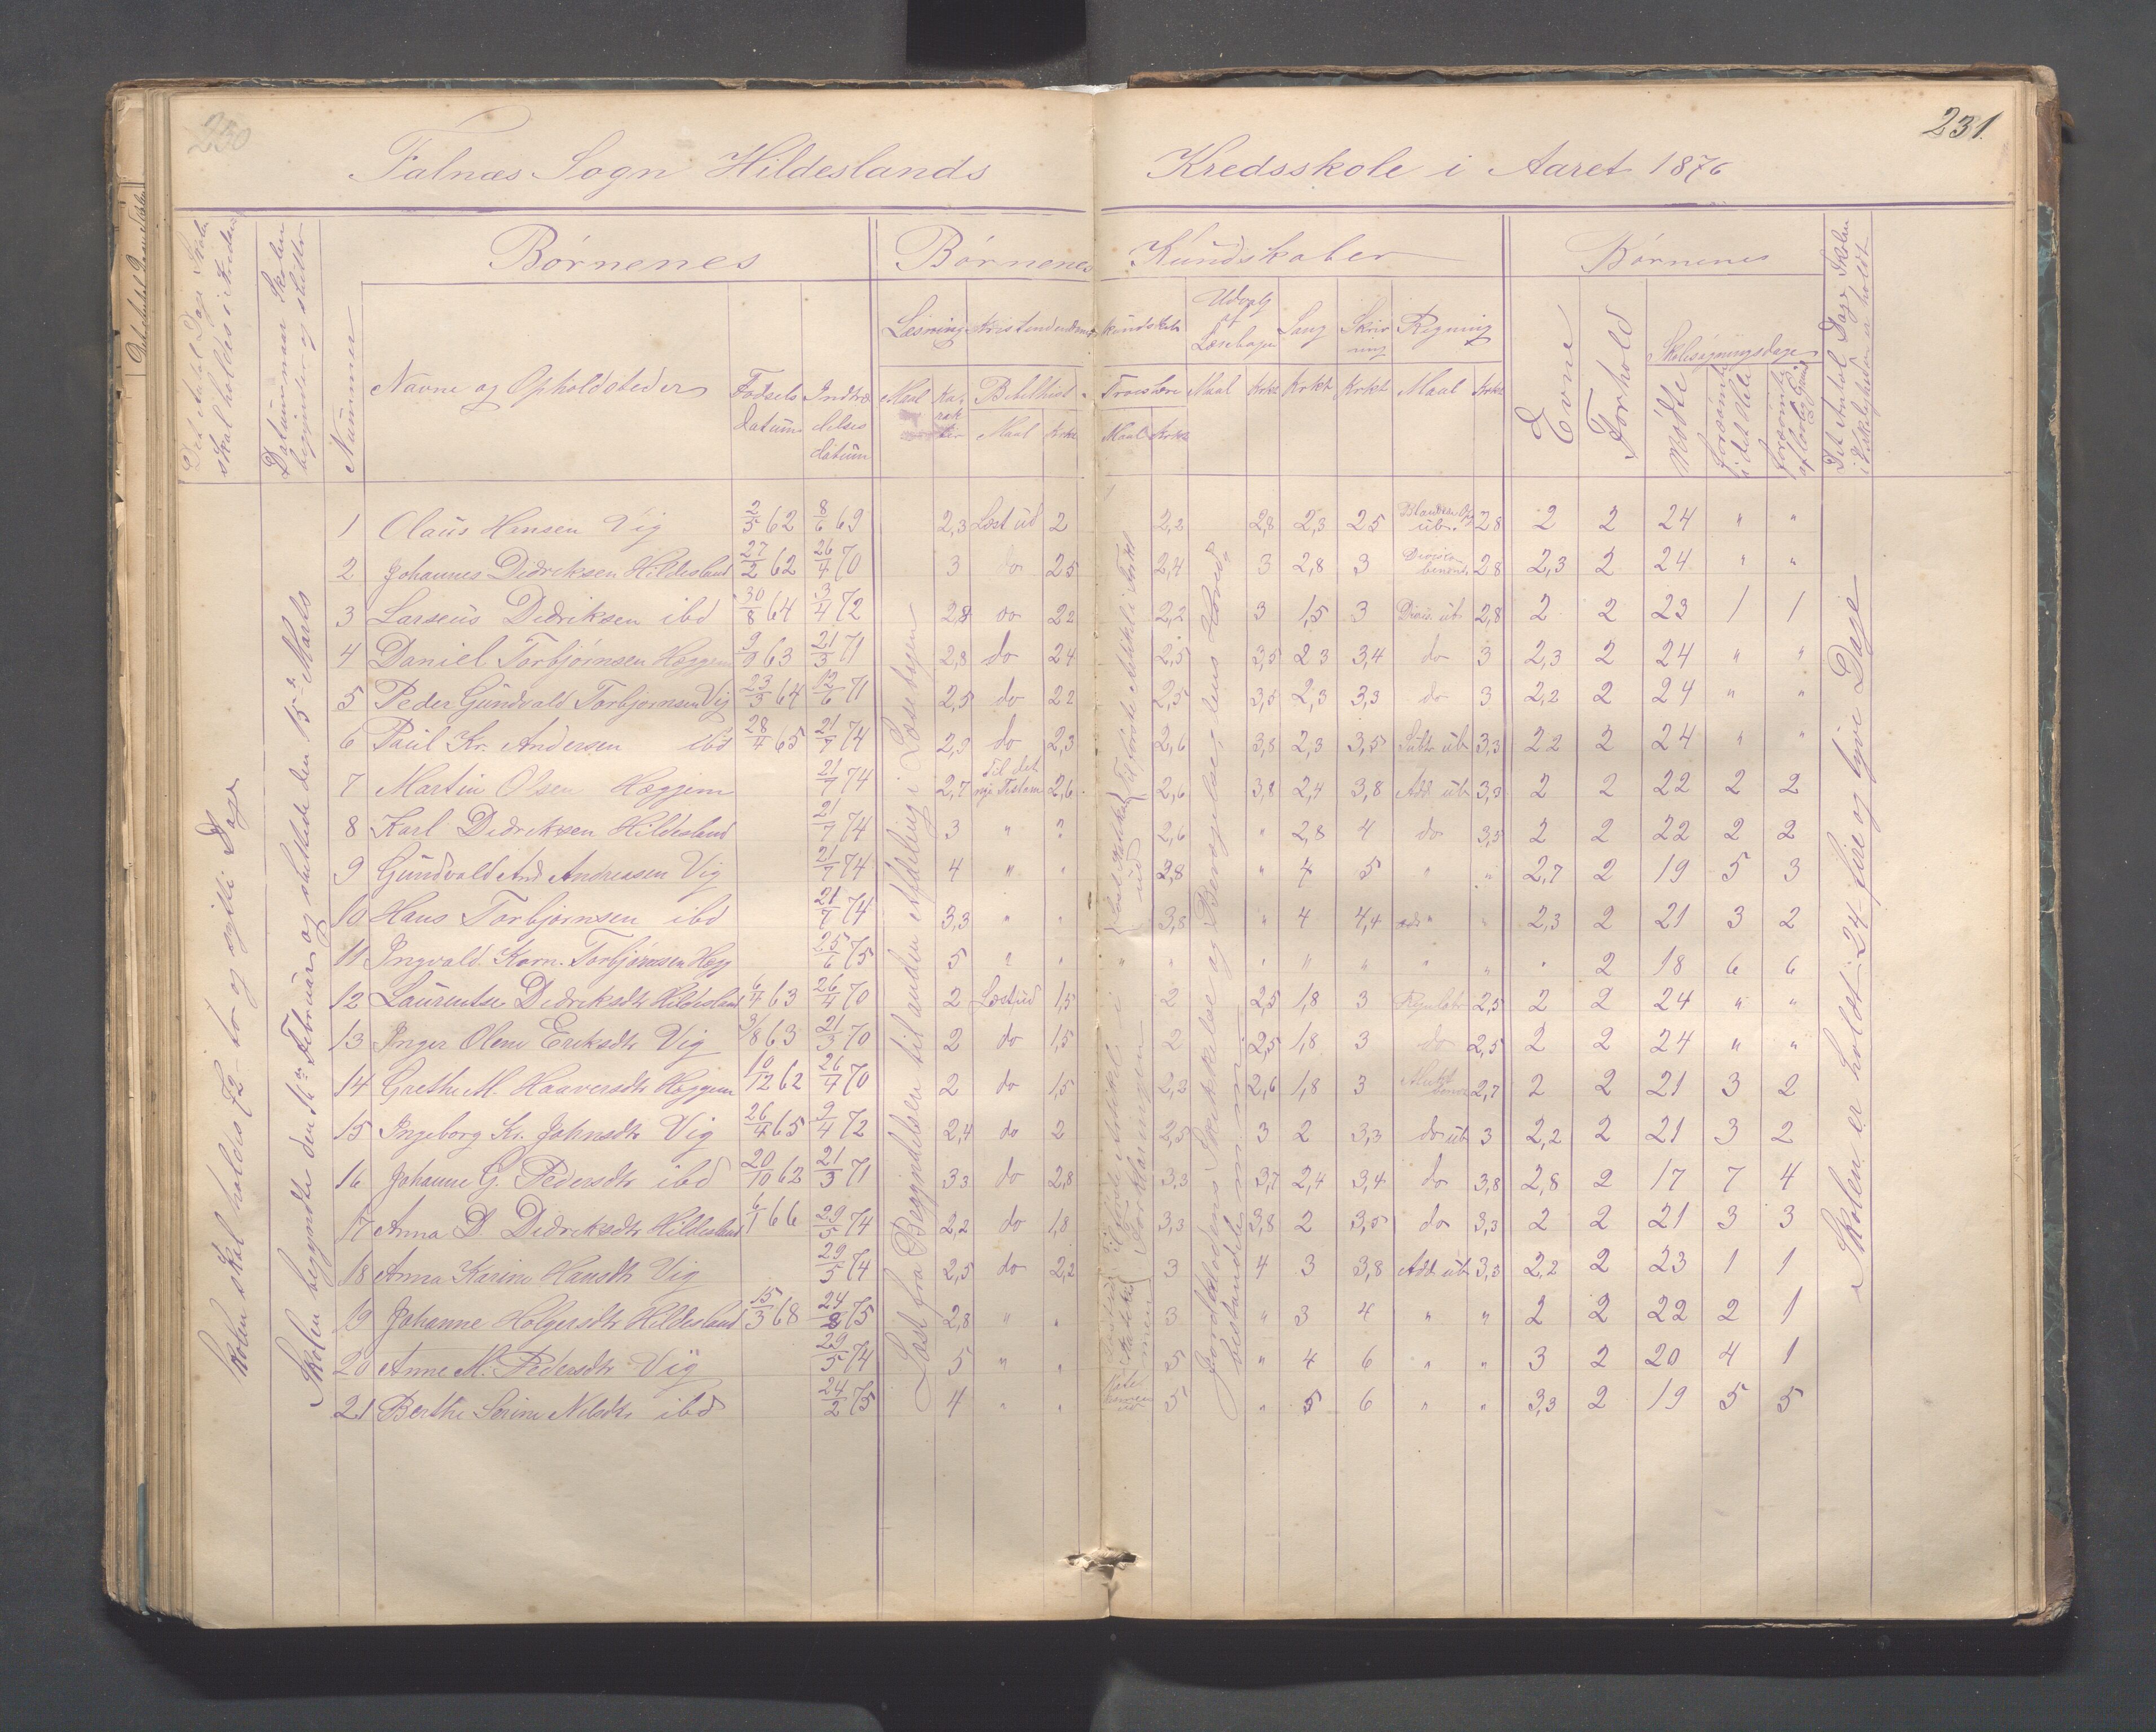 230
231.
Falnæs Sogn Hildeslands Kredsskole i Aaret 1876
Det Antal Dage Skole skal holdes i Kredsen
Datum naar Skolen begynder og slutter
Nummer
Børnenes
Børnenes Kundskaber
Børnenes
Det Antal Dage Skolen i Virkeligheden er holdt
Navne og Opholdssteder
Fødsels datum
Indtrædelses datum
Læsning
Kristendomskundskab
Udvalg af Læsebogen
Sang
Skrivning
Regning
Evne
Forhold
Skolesøgningsdage
Maal Karakter Bibelhist. Troeslære Maal Krkt Krkt Krkt Maal Krkt
Maal Krkt Maal Krkt
Mødte
forsømte i det Hele
forsømte af lovlig Grund
Skolen skal holdes 72 to og sytti Dage
Skolen begyndte den 16de Februar og sluttede den 15de Marts
Læst fra Begyndelsen til anden Afdeling i Læsebogen
Jordklodens Skikkelse og Bevægelse, dens Hovedbestanddele m. m. m.
Skolen er holdt 24 fire og tyve Dage
1 Olaus Hansen Vig 2/5 62 8/6 69 2,3 Læst ud 2 2,2 2,8 2,3 25 ub. 28 2 2 24 " "
2 Johannes Didriksen Hildesland 27/2 62 26/4 70 3 do 25 2,4 3 2,8 3 28 2,3 2 24 " "
3 Larseus Didriksen ibd 30/8 64 3/4 72 28 do 22 2,2 3 1,5 3 Divis. ub 2,8 2 2 23 1 1
4 Daniel Torbjørnsen Hæggem 9/9 63 21/3 71 2,8 do 24 2,5 3,5 23 3,4 do 3 2,3 2 24 " "
5 Peder Gundvald Torbjørnsen Vig 23/3 64 12/6 71 2,5 do 22 2,5 3,5 2,3 3,3 do 3 2,2 2 24 " "
6 Paul Kr. Andersen ibd 28/4 65 21/7 74 2,9 do 2,3 2,6 3,8 2,3 3,5 Subtr ub 3,3 22 2 24 " "
7 Martin Olsen Hæggem 21/7 74 2,7 Til det nye Testam 2,6 2,6 3,8 2,4 3,8 Add ub 3,3 2 2 22 2 2
8 Karl Didriksen Hildesland 21/7 74 3 " 2,6 " 2,8 4 do 3,5 2 2 22 2 2
9 Gundvald And Andreasen Vig 21/7 74 4 " " 2,8 " 4 5 " " 2,7 2 19 5 3
10 Hans Torbjørnsen ibd 21/7 74 3,3 " " 3,3 " 4 4,4 " 2,3 2 21 3 2
11 Ingvald Korn. Torbjørnsen Hægg 25/6 75 5 " " " " " " " " " 2 18 6 6
12 Laurentse Didriksdtr Hildesland 6/4 63 26/4 70 2 Læst ud 1,5 2 2,5 1,8 3 2,5 2 2 24 " "
13 Inger Olene Eriksdtr Vig 3/8 63 21/3 70 2 do 1,5 2 2,5 1,8 3 do 2,5 2 2 24 " "
14 Grethe M. Haaversdtr Hæggem 10/12 62 26/4 70 2 do 1,5 2,3 2,6 1,8 3 2,7 2 2 21 3 2
15 Ingeborg Kr. Johnsdtr Vig 26/4 65 9/4 72 2,4 do 2 2,5 3 2 3,3 do ub 3 2,2 2 21 3 2
16 Johanne G. Pedersdtr ibd 20/10 62 21/3 71 33 do 2,8 3,3 3,7 2,4 3,4 do 3,8 2,8 2 17 7 4
17 Anna D. Didriksdtr Hildesland 6/1 66 29/5 74 2,2 do 1,8 3,3 3,8 2 3,5 do 3,3 2 2 21 3 3
18 Anna Karine Hansdtr Vig 29/5 74 2,5 do 2,2 3 4 3 3,8 Add ub 3,3 2,2 2 23 1 1
19 Johanne Holgersdtr Hildesland 15/3 68 24/8 75 2,8 " " 3 " 3 4 " " 2 2 22 2 1
20 Anne M. Pedersdtr Vig 29/5 74 5 " " 5 " 4 6 " " 3 2 20 4 1
21 Berthe Serine Nilsdtr ibd 24/2 75 4 " " 5 " 5 6 " " 3,3 2 19 5 5